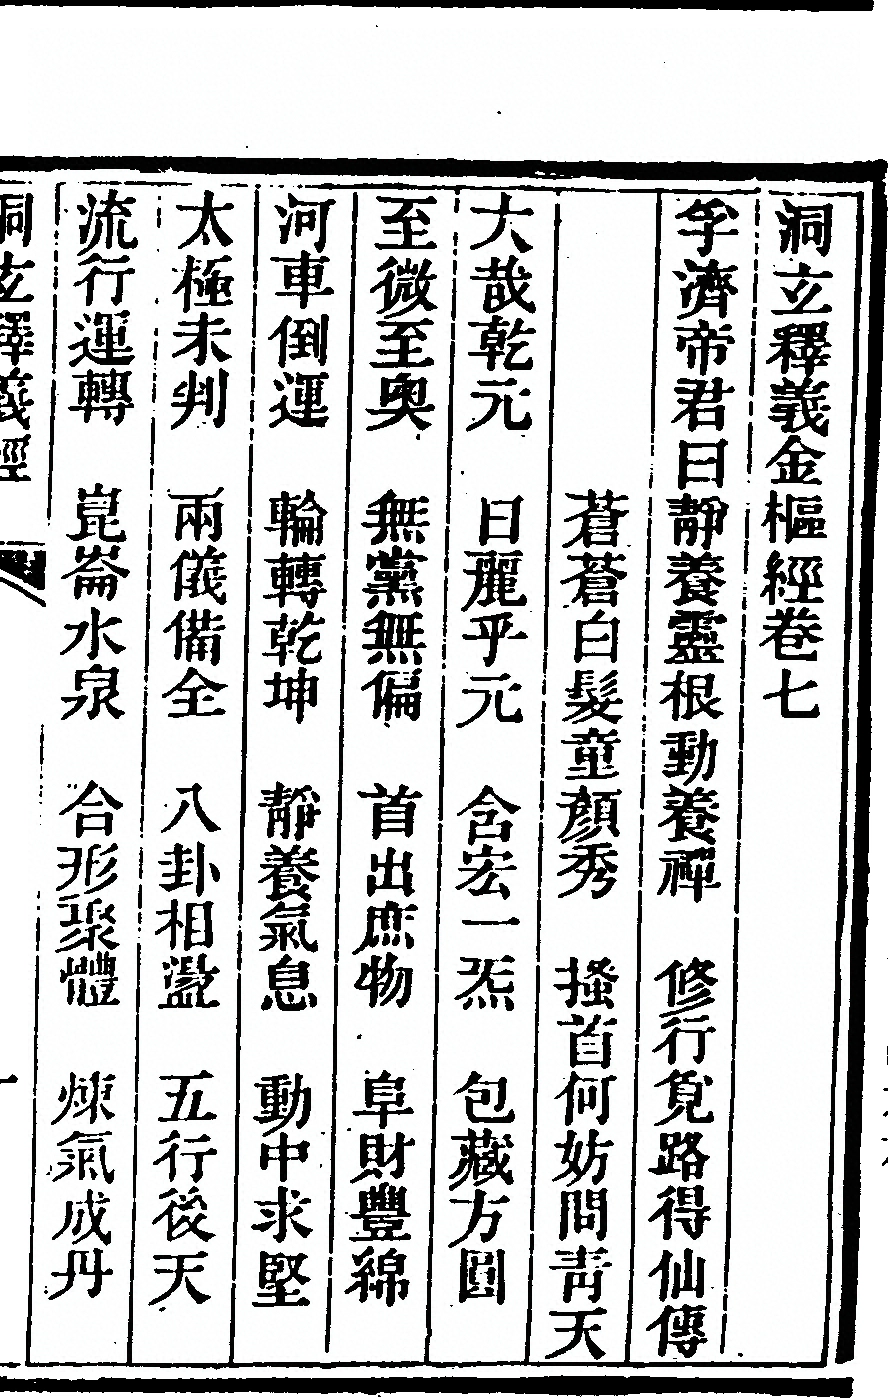 洞玄釋義金樞經卷七
孚濟帝君曰靜養靈根動養禪　修行覓路得仙傳
蒼蒼白髮童顏秀　搔首何妨問靑天
大哉乾元　日麗乎元　含宏一炁　包藏方圓
至微至奧　無黨無偏　首出庶物　阜財豐綿
河車倒運　輪轉乾坤　靜養氣息　動中求堅
太極未判　兩儀備全　八卦相盪　五行後天
流行運轉　崑崙水泉　合形聚體　煉氣成丹
洞玄釋義經　一